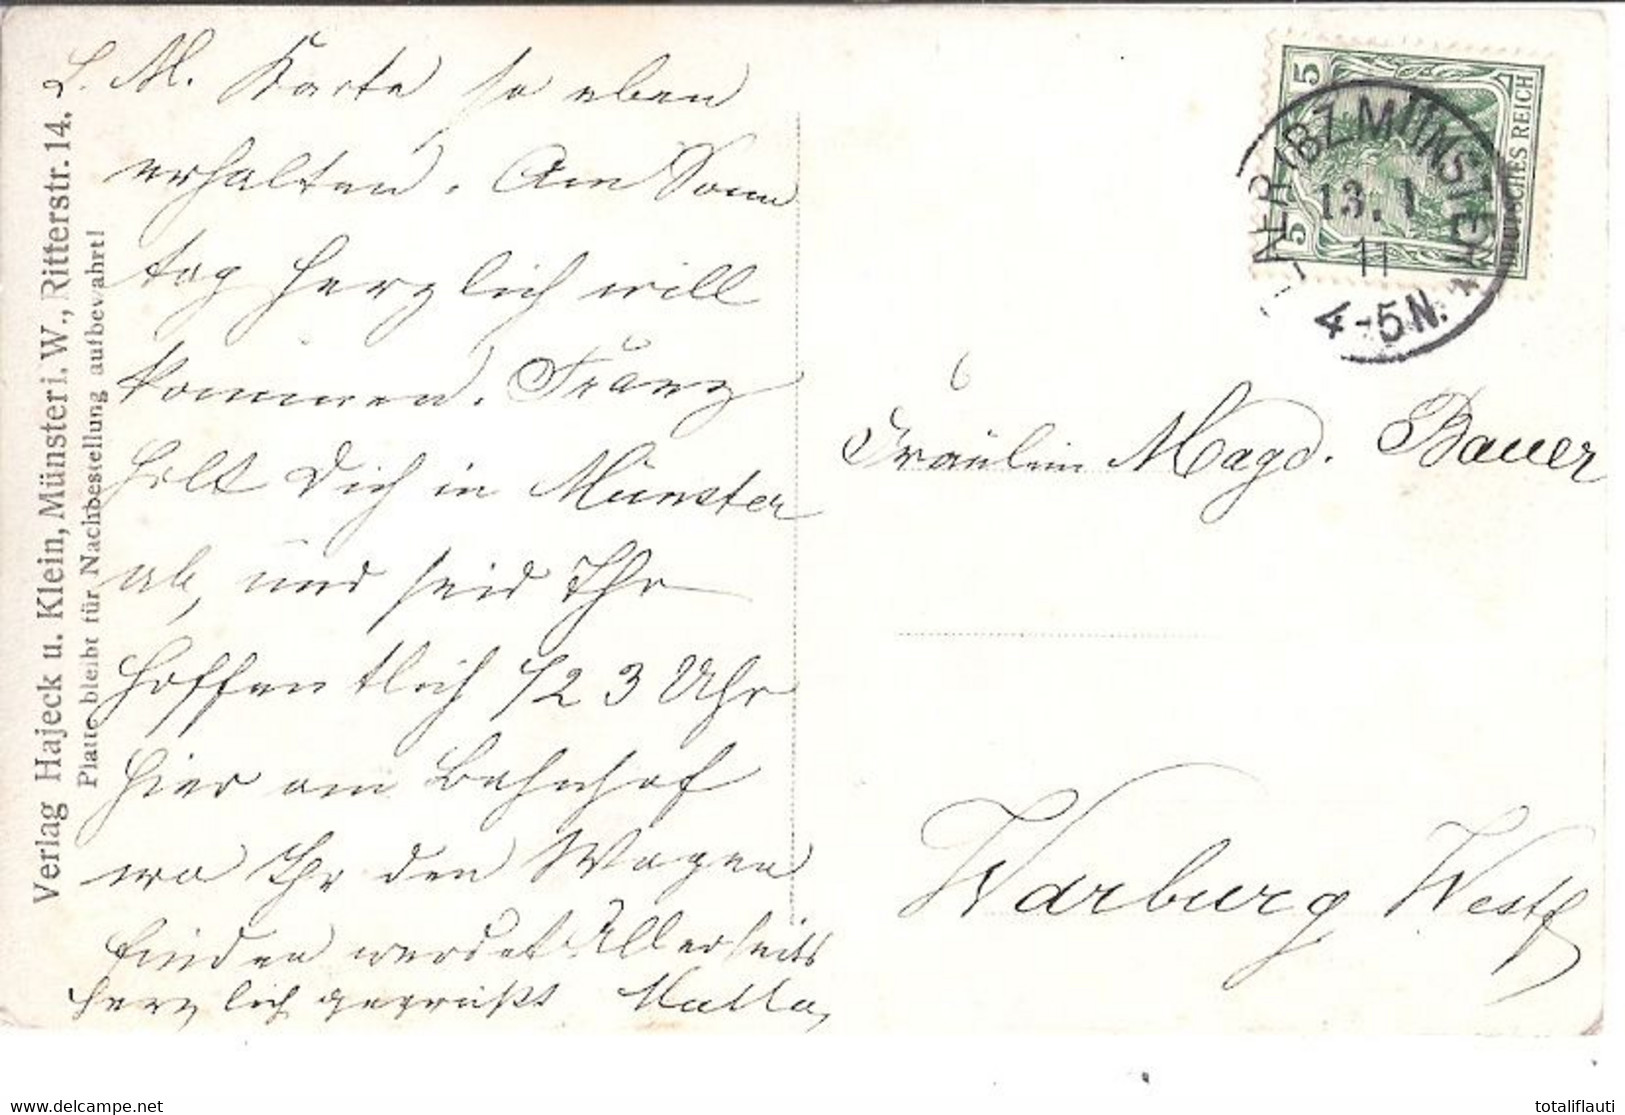 L. M. Karte so eben
erhalten. Am Sonn
tag herzlich will
kommen. Franz
holt Dich in Münster
ab, und seid Ihr
hoffentlich 1/2 3 Uhr
hier am Bahnhof
wo Ihr den Wagen
finden werdet Allerseits
herzlich gegrüßt
Verlag Hajeck u. Klein, Münster i. W., Ritterstr. 14.
Platte bleibt für Nachbestellung aufbewahrt!
5 5
DEUTSCHES REICH
MÜNSTER
13. 1
11
4-5N.
Fräulein Magd. Bauer
Warburg Westf
delcampe.net
totaliflauti